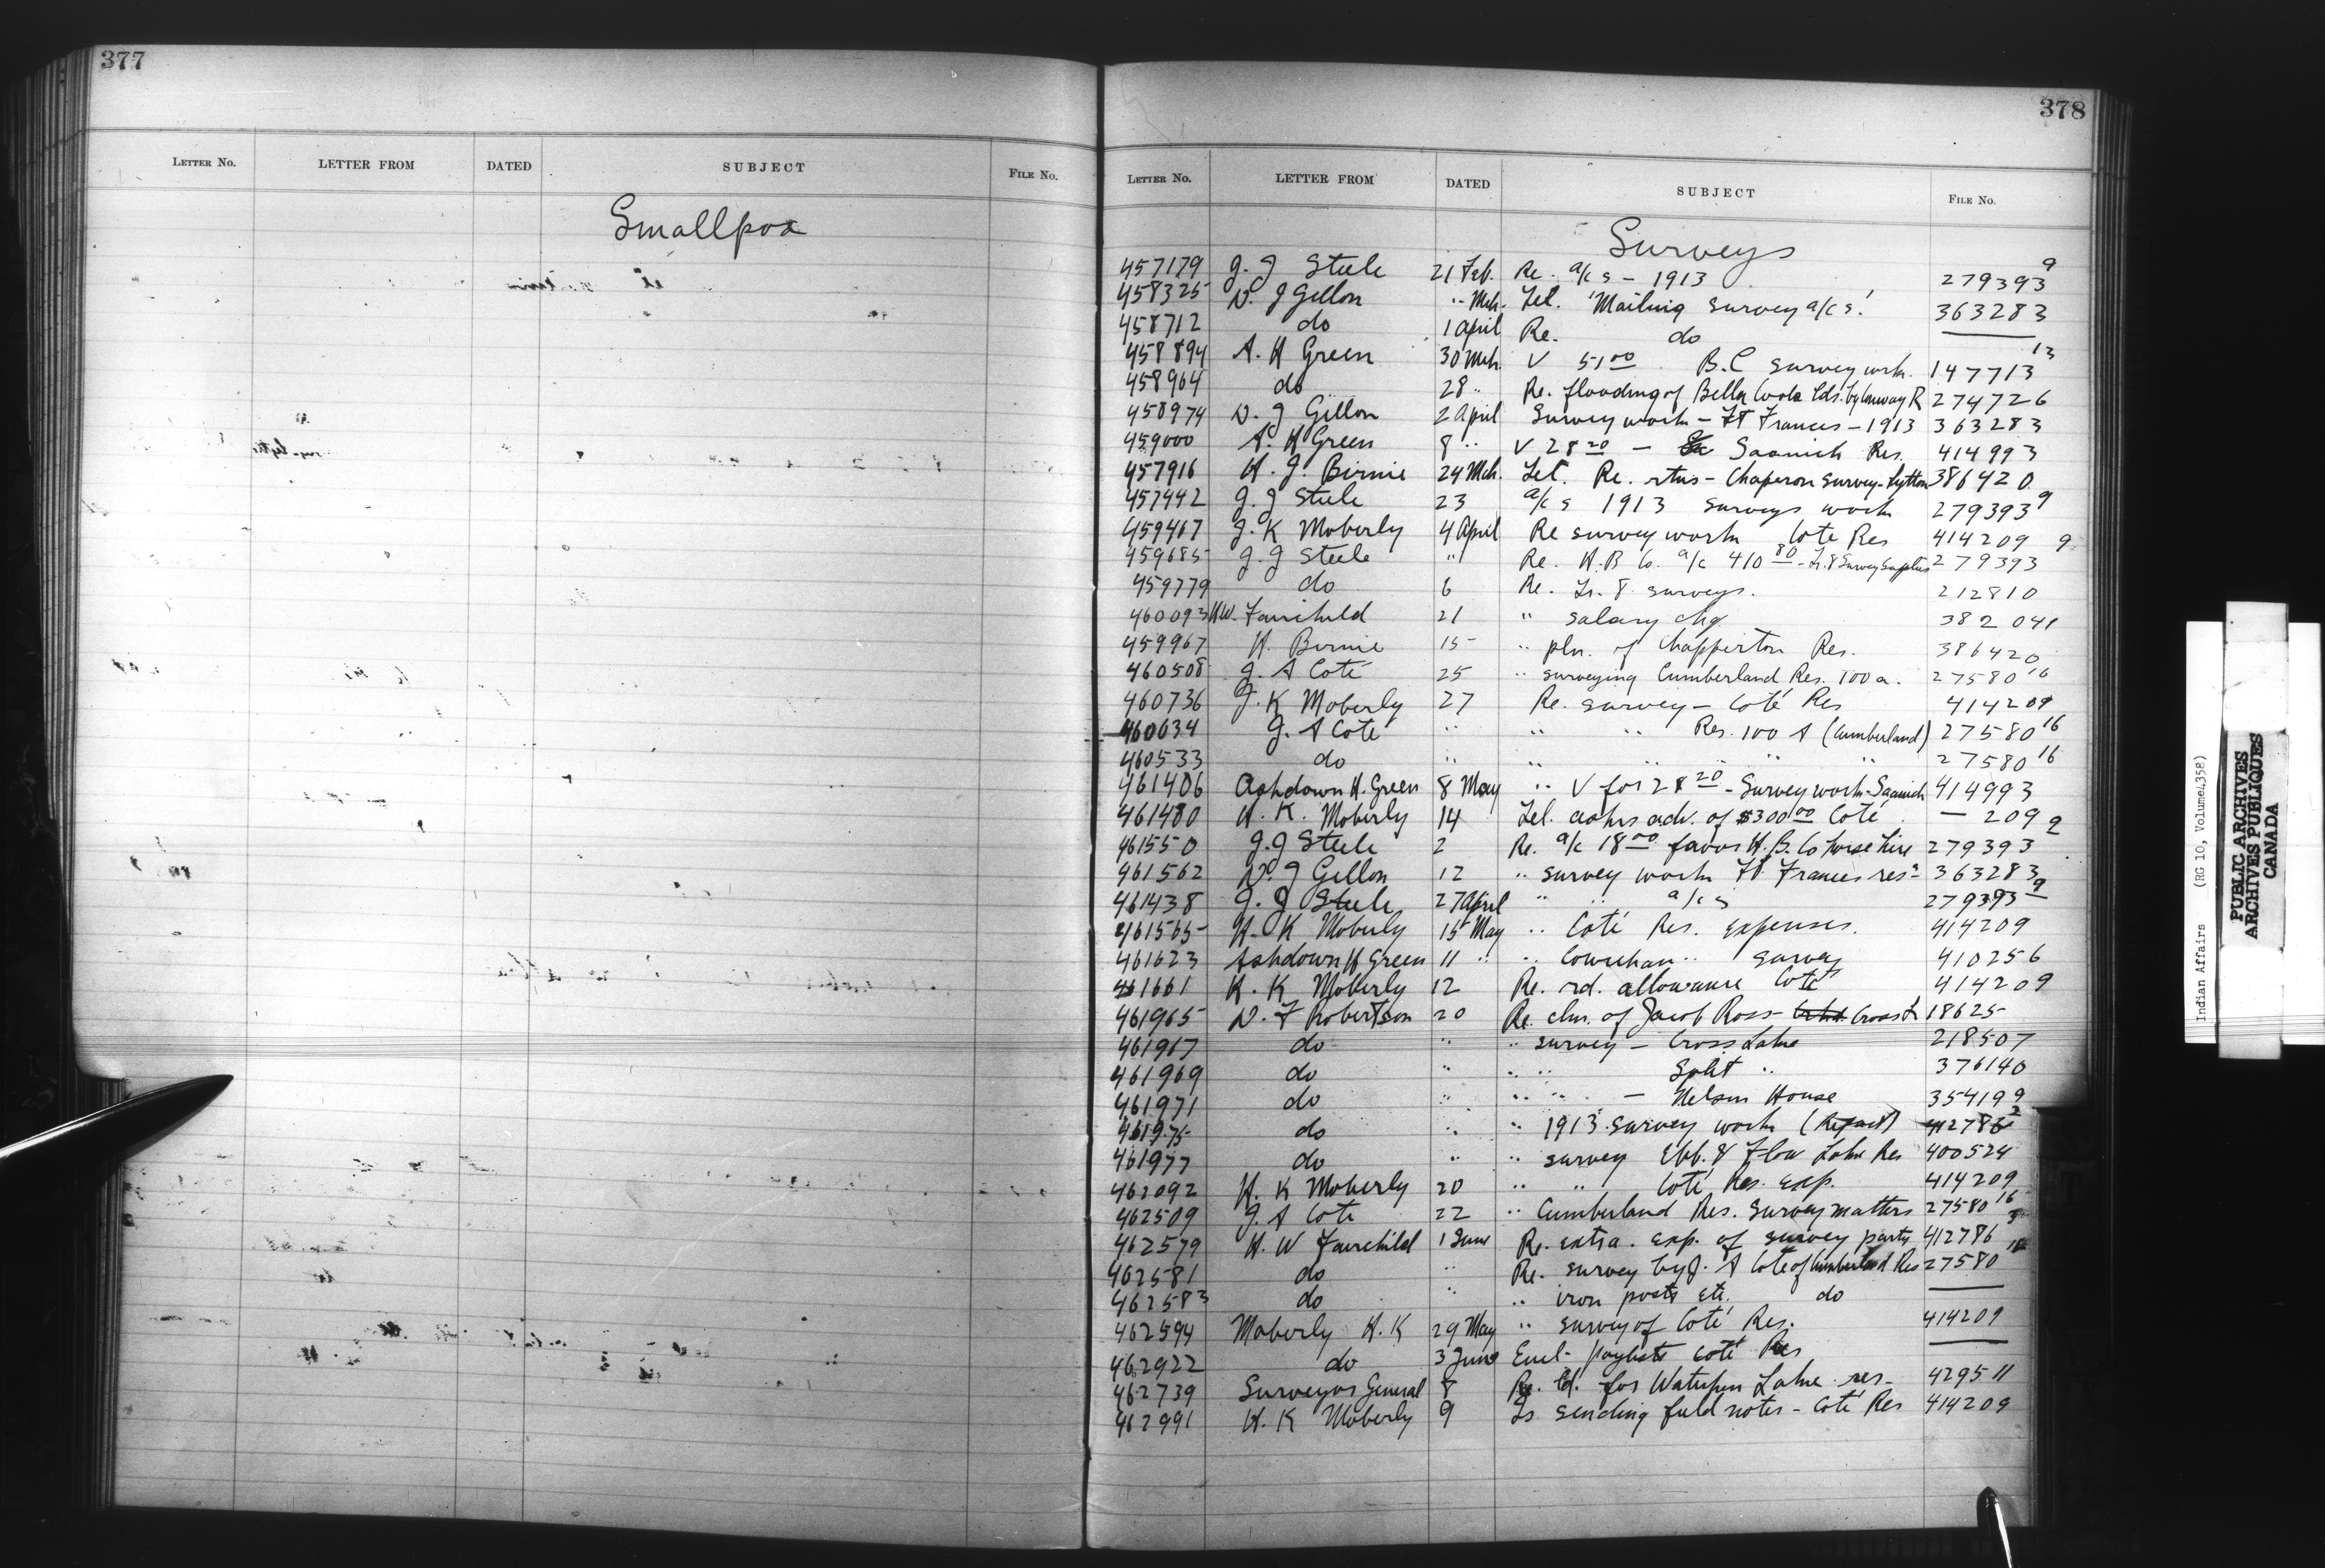 377
LETTER NO. LETTER FROM DATED SUBJECT FILE NO.
Smallpox
378
LETTER NO. LETTER FROM DATED SUBJECT FILE NO.
Surveys
457179 J. J Steele 21 Feb. Re. a/c s - 1913 279393 9
458325 D. J Gillon " Mch. Tel. "Mailing survey a/c s." 363283
458712 do 1 April Re. do —
458894 A. H Green 30 Mch. V 51 00 B.C survey work. 147713 13
458964 do 28 " Re. flooding of Bella Coola Ids. by R 274726
458974 D. J Gillon 2 April Survey work - Ft Frances - 1913 363283
459000 A. H Green 8 " V 28 20 - Saanich Res. 414993
457916 H. J. Birnie 24 Mch. Let. Re. rtns - Chaperon Survey - Lytton 386420
457442 J. J Steele 23 a/c s 1913 surveys work 279393 9
459467 J. K Moberly 4 April Re survey work Cote Res 414209
459685 J. J Steele " Re. H. B Co. a/c 410 80 - Tr. 8 Survey Supplies 279393 9
459779 do 6 Re. Tr. 8 surveys. 212810
460093 H W. Fairchild 21 " salary chq. 382041
459967 H. Birnie 15 " pln. of Chapperton Res. 386420
460508 J. A Coté 25 " surveying Cumberland Res. 100 a. 27580 16
460736 J. K Moberly 27 Re. survey - Coté Res 414209
460634 J. A Coté " " " Res. 100 A (Cumberland) 27580 16
460533 do " " " " " 27580 16
461406 Ashdown H. Green 8 May " V for 28 20 - Survey work - Saanich 414993
461480 H. K. Moberly 14 Tel. adv. of $300 00 Coté — 209
461550 J. J Steele 2 Re. a/c 18 00 favor H. B. Co horse hire 279393 9
461562 D. J Gillon 12 " survey work Ft Frances res 363283
461438 J. J Steele 27 April " " a/c s 279393 9
461565 H. K Moberly 15 May " Coté Res. expenses. 414209
461623 Ashdown H Green 11 " " Cowichan " survey 410256
461661 H. K Moberly 12 Re. rd. allowance Coté 414209
461965 D. F Robertson 20 Re. clm. of Jacob Ross - Cross L 18625
461967 do " " survey - Cross Lake 218507
461969 do " " " Split " 376140
461971 do " " " - Nelson House 354199
461975 do " " 1913 survey work (Report) 412786 2
461977 do " " survey Ebb & Flow Lake Res 400524
462092 H. K Moberly 20 " " Coté Res. exp. 414209
462509 J. A Cote 22 " Cumberland Res. Survey matters 27580 16
462579 H. W Fairchild 1 June Re. extra. exp. of survey party 412786 3
462581 do " Re. survey by J. A Cote of Cumberland Res 27580 16
462583 do " " iron posts etc. do —
462594 Moberly H. K 29 May " survey of Coté Res. 414209
462922 do 3 June Encl. paylists Coté Res —
462739 Surveyor General 8 Re. for Lake res - 429511
462991 H. K Moberly 9 Is sending field notes - Coté Res 414209
Indian Affairs (RG 10, Volume 4358)
PUBLIC ARCHIVES
ARCHIVES PUBLIQUES
CANADA